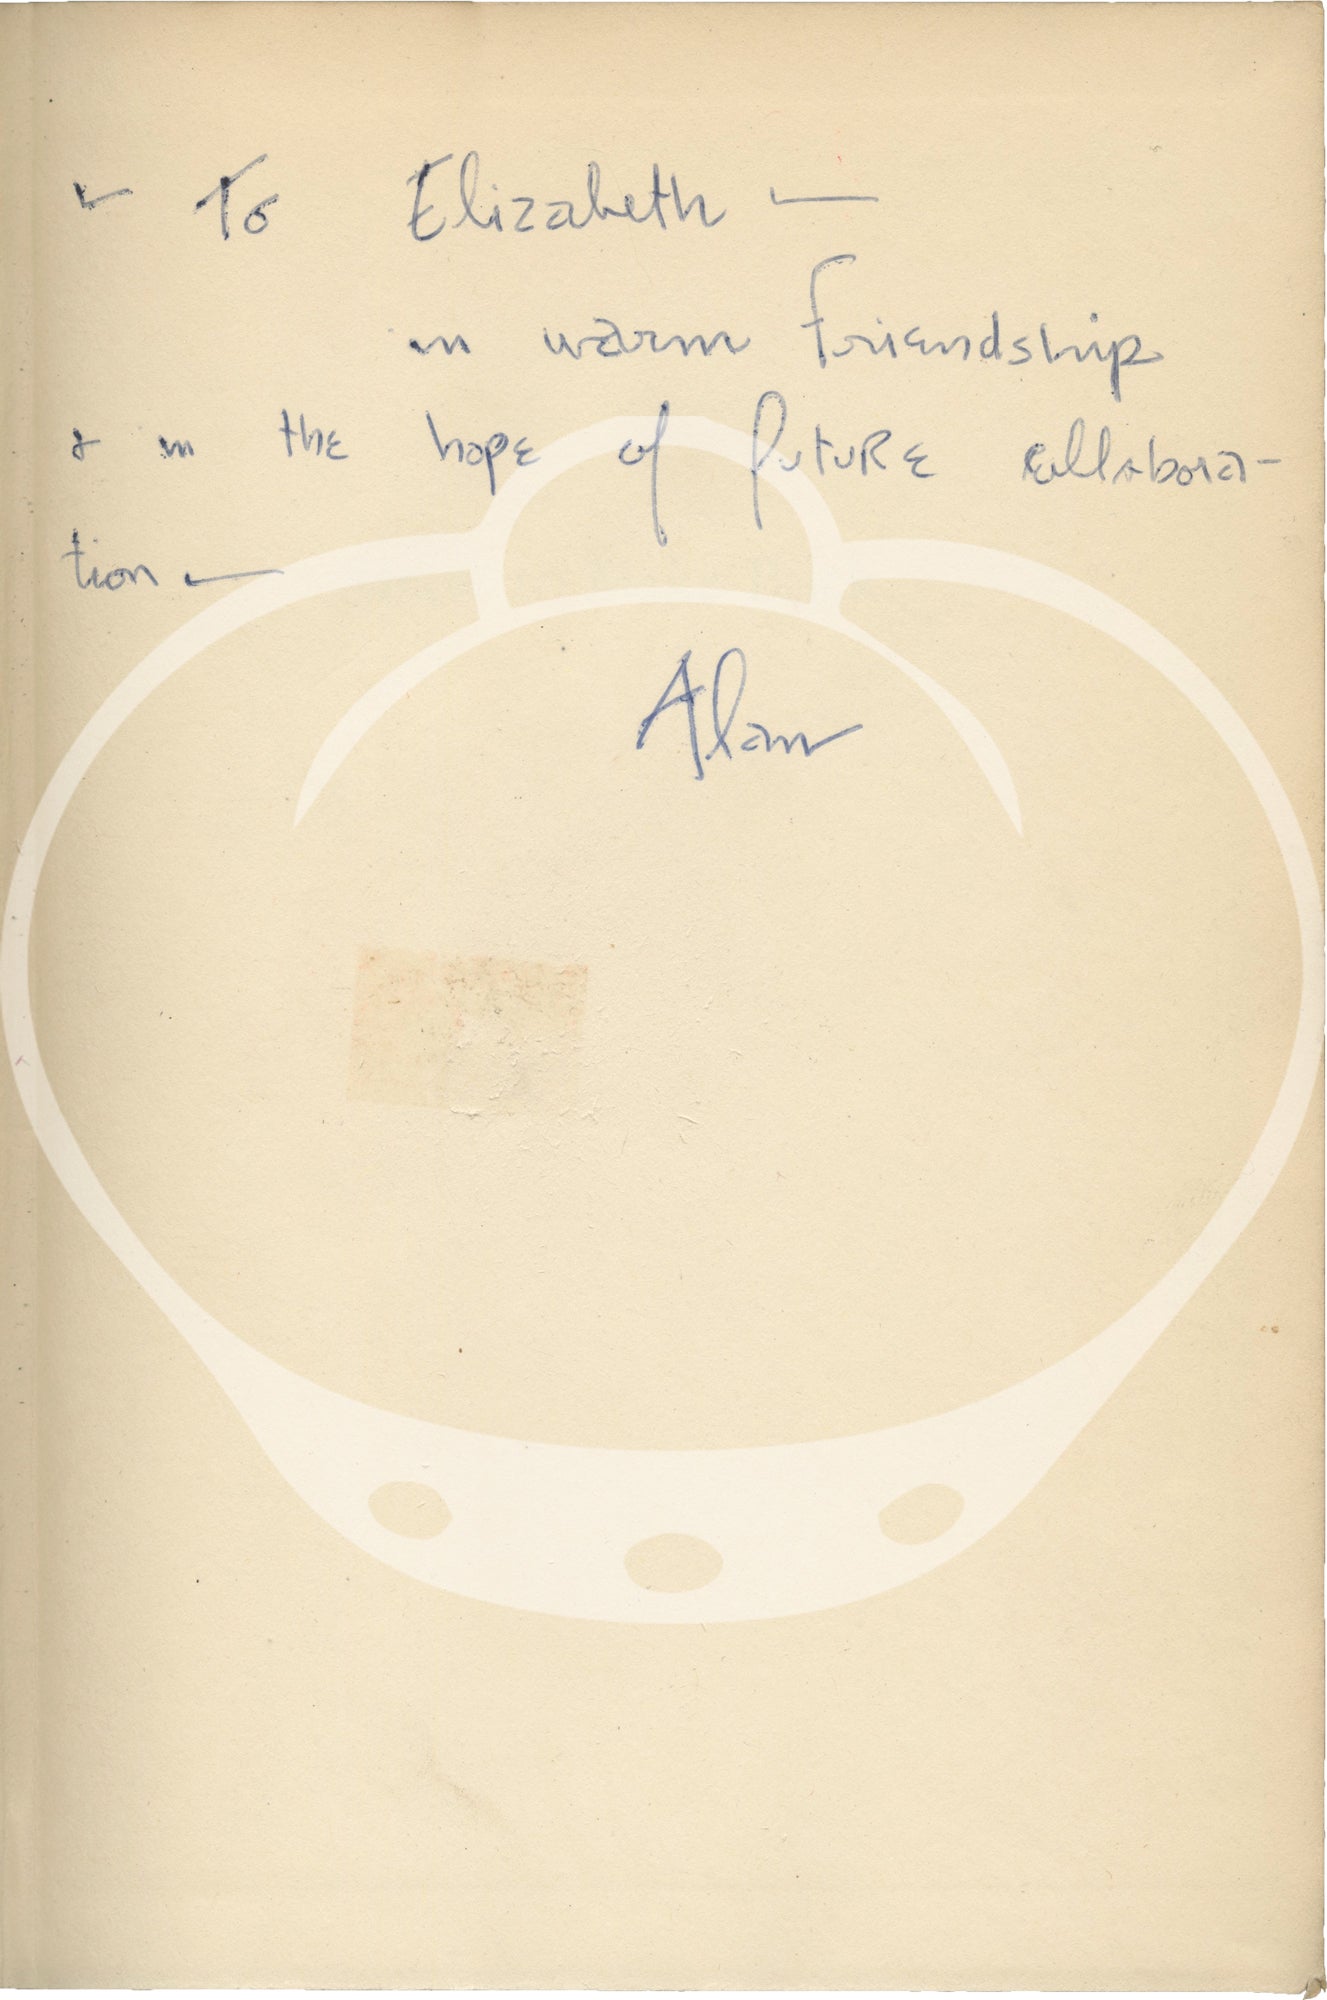 – To Elizabeth –
in warm friendship
& in the hope of future collabora-
tion –
Alan